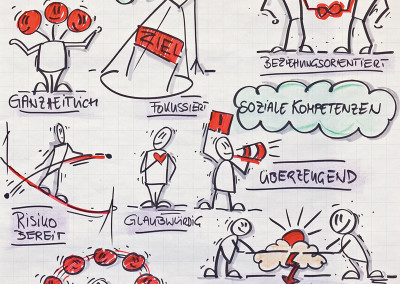 ZIEL
GANZHEITLICH
FOKUSSIERT
BEZIEHUNGSORIENTIERT
SOZIALE KOMPETENZEN
!
ÜBERZEUGEND
RISIKO
BEREIT
GLAUBWÜRDIG